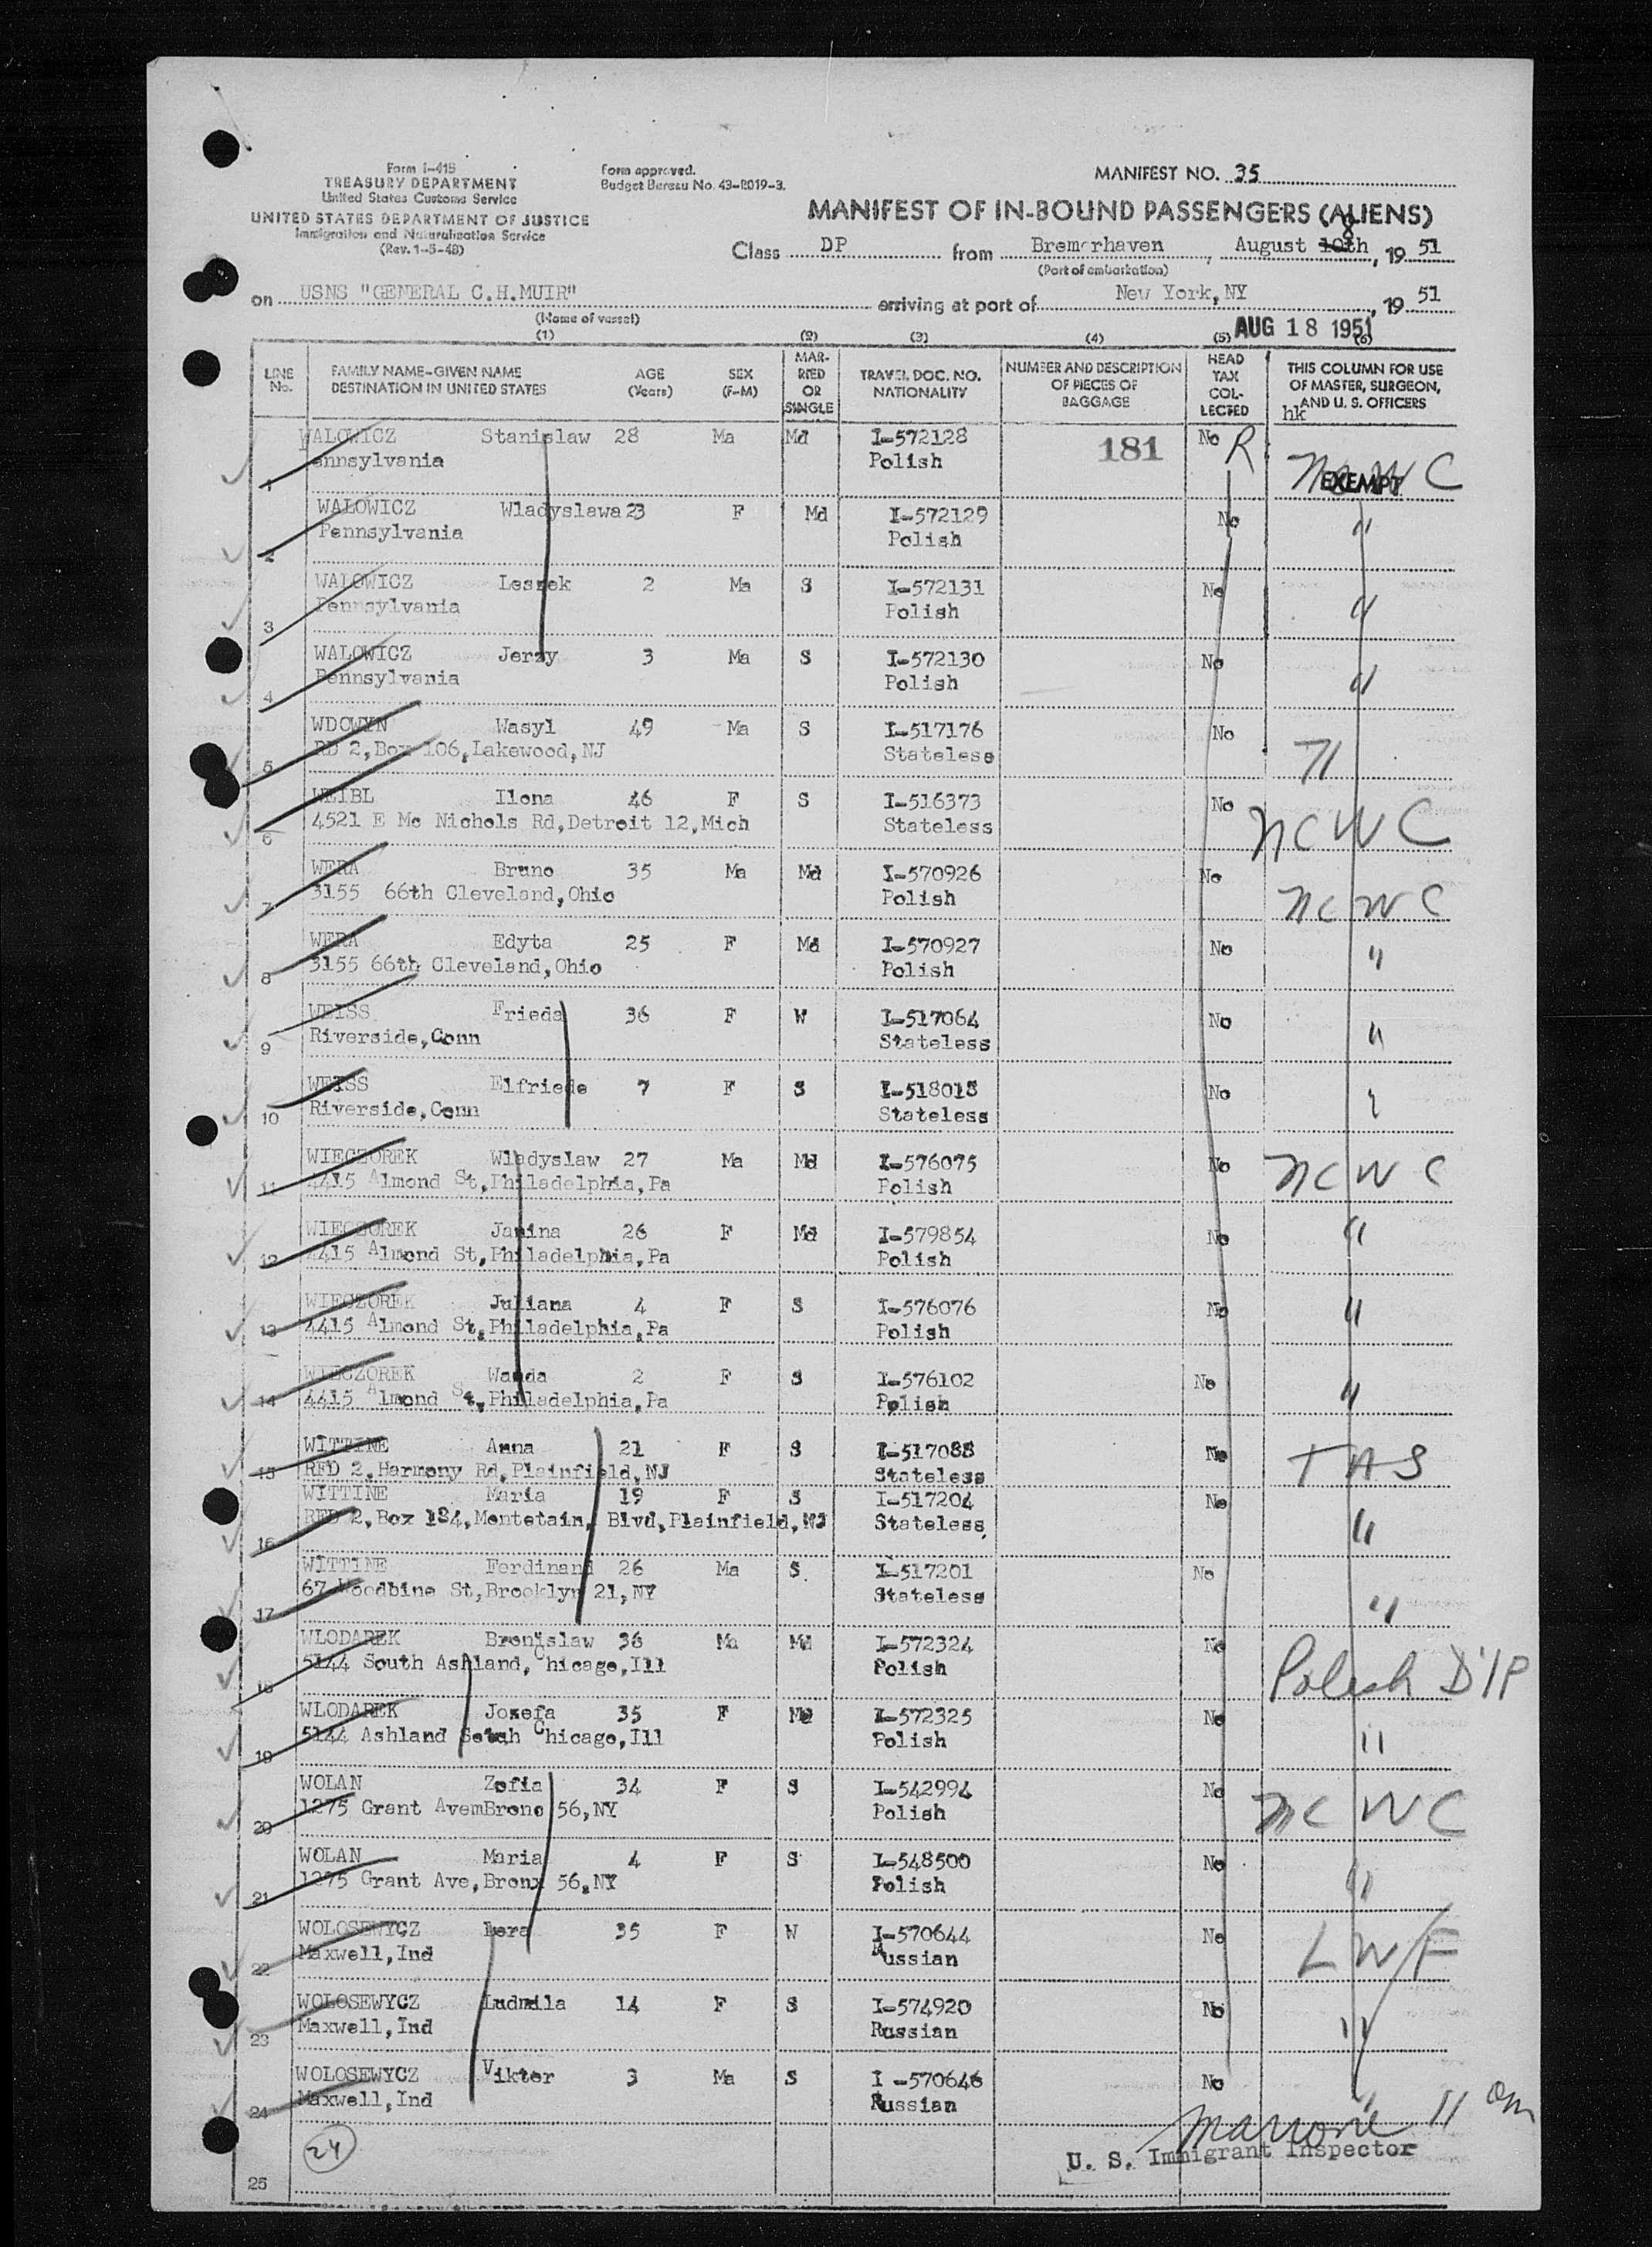 Form I-415
TREASURY DEPARTMENT
United States Customs Service
UNITED STATES DEPARTMENT OF JUSTICE
Immigration and Naturalization Service
(Rev. 1-5-48)
Form approved.
Budget Bureau No. 43-R019-3.
MANIFEST NO. 35
MANIFEST OF IN-BOUND PASSENGERS (ALIENS)
Class DP from Bremerhaven, August 10th 8, 19 51
(Port of embarkation)
on USNS "GENERAL C.H.MUIR" arriving at port of New York, NY, 19 51
(Name of vessel)
AUG 18 1951
(1) (2) (3) (4) (5) (6)
LINE No. FAMILY NAME-GIVEN NAME DESTINATION IN UNITED STATES AGE (Years) SEX (F-M) MARRIED OR SINGLE TRAVEL DOC. NO. NATIONALITY NUMBER AND DESCRIPTION OF PIECES OF BAGGAGE HEAD TAX COLLECTED THIS COLUMN FOR USE OF MASTER, SURGEON, AND U. S. OFFICERS
hk
WALOWICZ Stanislaw 28 Ma Md I-572128 181 No R NCWC
1 ennsylvania Polish EXEMPT
WALOWICZ Wladyslawa 23 F Md I-572129 No "
2 Pennsylvania Polish
WALOWICZ Leszek 2 Ma S I-572131 No "
3 Pennsylvania Polish
WALOWICZ Jerzy 3 Ma S I-572130 No "
4 Pennsylvania Polish
WDOWYN Wasyl 49 Ma S I-517176 No
5 RD 2,Box 106,Lakewood,NJ Stateless
WEIBL Ilona 46 F S I-516373 No NCWC
6 4521 E Mc Nichols Rd,Detroit 12,Mich Stateless
WERA Bruno 35 Ma Md I-570926 No NCWC
7 3155 66th Cleveland,Ohio Polish
WERA Edyta 25 F Md I-570927 No "
8 3155 66th Cleveland,Ohio Polish
WEISS Frieda 36 F W I-517064 No "
9 Riverside,Conn Stateless
WEISS Elfriede 7 F S I-518018 No "
10 Riverside,Conn Stateless
WIECZOREK Wladyslaw 27 Ma Md I-576075 No NCWC
11 4415 Almond St,Philadelphia,Pa Polish
WIECZOREK Janina 26 F Md I-579854 No "
12 4415 Almond St,Philadelphia,Pa Polish
WIECZOREK Juliana 4 F S I-576076 No "
13 4415 Almond St,Philadelphia,Pa Polish
WIECZOREK Wanda 2 F S I-576102 No "
14 4415 Almond St,Philadelphia,Pa Polish
WITTINE Anna 21 F S I-517088 No TAS
15 RFD 2,Harmony Rd,Plainfield,NJ Stateless
WITTINE Maria 19 F S I-517204 No "
16 RFD 2,Box 184,Montetain, Blvd,Plainfield,NJ Stateless
WITTINE Ferdinand 26 Ma S I-517201 No "
17 67 Woodbine St,Brooklyn 21,NY Stateless
WLODAREK Bronislaw 36 Ma Md I-572324 No Polish D'P
18 5144 South Ashland,Chicago,Ill Polish
WLODAREK Jozefa 35 F Md I-572325 No "
19 5144 Ashland South Chicago,Ill Polish
WOLAN Zofia 34 F S I-542994 No NCWC
20 1275 Grant AvemBronc 56,NY Polish
WOLAN Maria 4 F S I-548500 No "
21 1275 Grant Ave,Bronx 56,NY Polish
WOLOSEWYCZ Lera 35 F W I-570644 No LWF
22 Maxwell,Ind Russian
WOLOSEWYCZ Ludmila 14 F S I-574920 No "
23 Maxwell,Ind Russian
WOLOSEWYCZ Viktor 3 Ma S I-570646 No "
24 Maxwell,Ind Russian
24
U. S. Immigrant Inspector
25